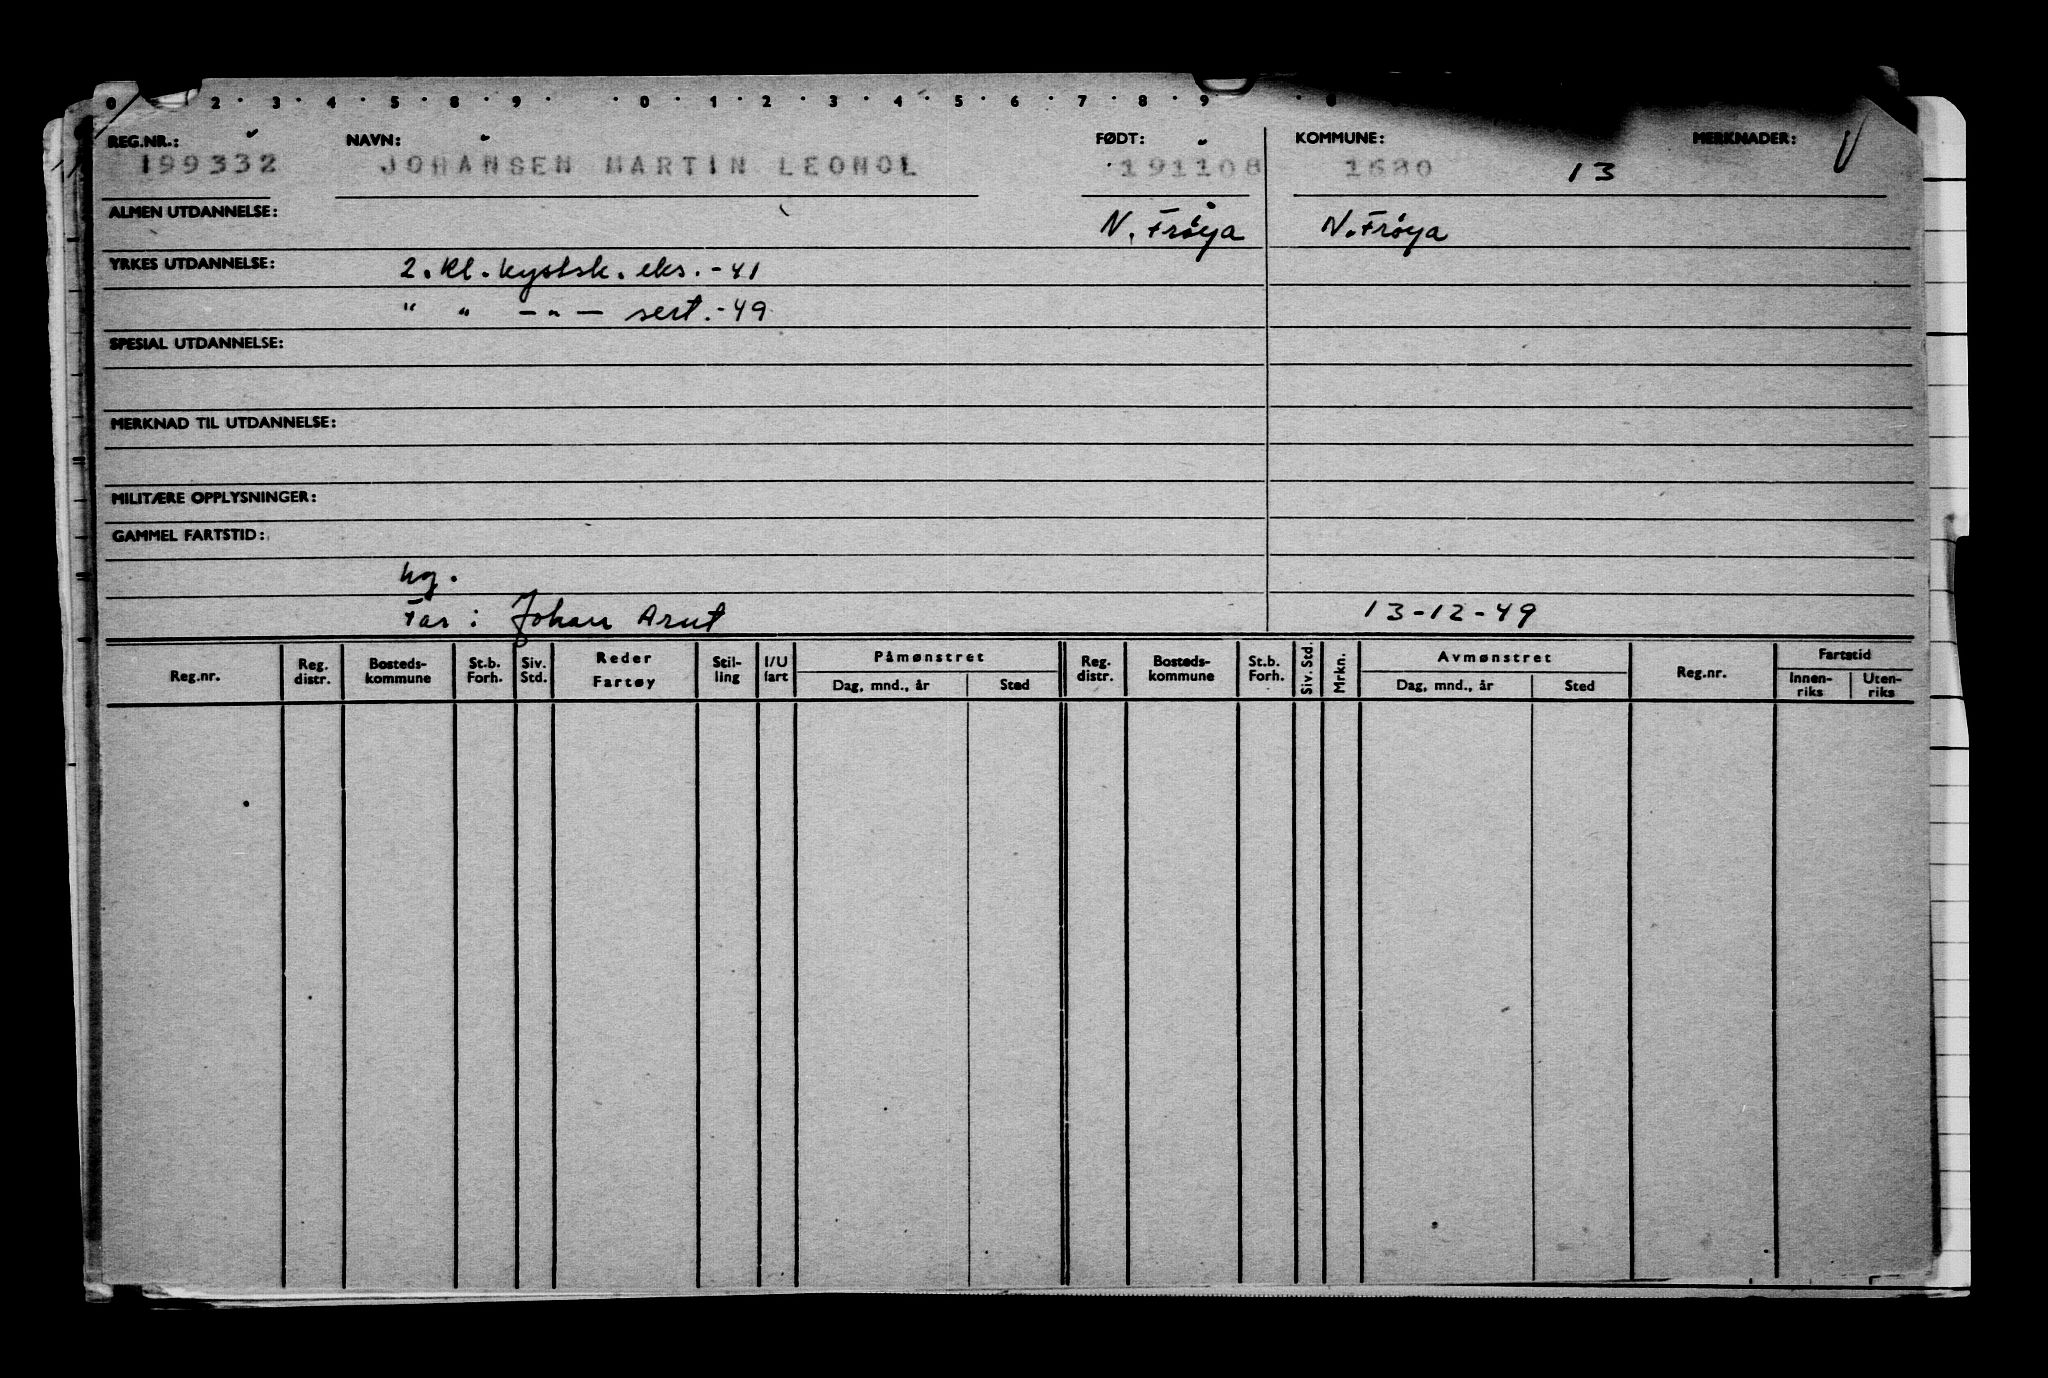 0 2 · 3 · 4 · 5 · 8 · 9 · · 0 · 1 · 2 · 3 · 4 · 5 · 6 · 7 · 8 · 9 · 0
REG.NR.: NAVN: FØDT: KOMMUNE: MERKNADER:
199332 JOHANSEN MARTIN LEONOL 191108 1620 13
ALMEN UTDANNELSE: N. Frøya N. Frøya
YRKES UTDANNELSE: 2. kl. kystsk. eks. - 41
" " — " — sert. - 49
SPESIAL UTDANNELSE:
MERKNAD TIL UTDANNELSE:
MILITÆRE OPPLYSNINGER:
GAMMEL FARTSTID:
ug.
Far : Johan Arnt 13-12-49
Reg.nr. Reg. distr. Bosteds-kommune St.b. Forh. Siv. Std. Reder Fartøy Stil-ling I/U fart Påmønstret Reg. distr. Bosteds-kommune St.b. Forh. Siv. Std. Mrkn. Avmønstret Reg.nr. Fartstid
Dag, mnd., år Sted Dag, mnd., år Sted Innen-riks Uten-riks